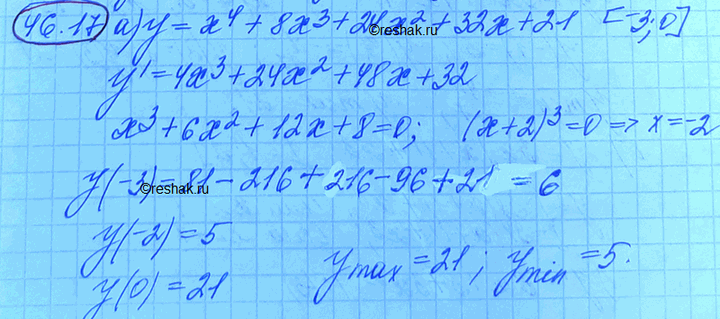 46.17 a) y = x⁴ + 8x³ + 24x² + 32x + 21 [-3; 0]
©reshak.ru
y' = 4x³ + 24x² + 48x + 32
x³ + 6x² + 12x + 8 = 0; (x+2)³ = 0 => x = -2
y(-3) = 81 - 216 + 216 - 96 + 21 = 6
©reshak.ru
y(-2) = 5
y(0) = 21 ymax = 21; ymin = 5.